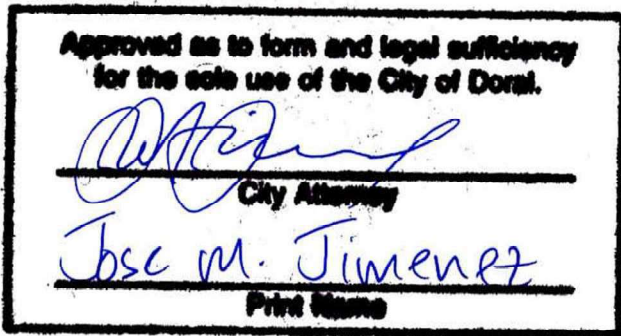 Approved as to form and legal sufficiency
for the sole use of the City of Doral.
City Attorney
Jose M. Jimenez
Print Name